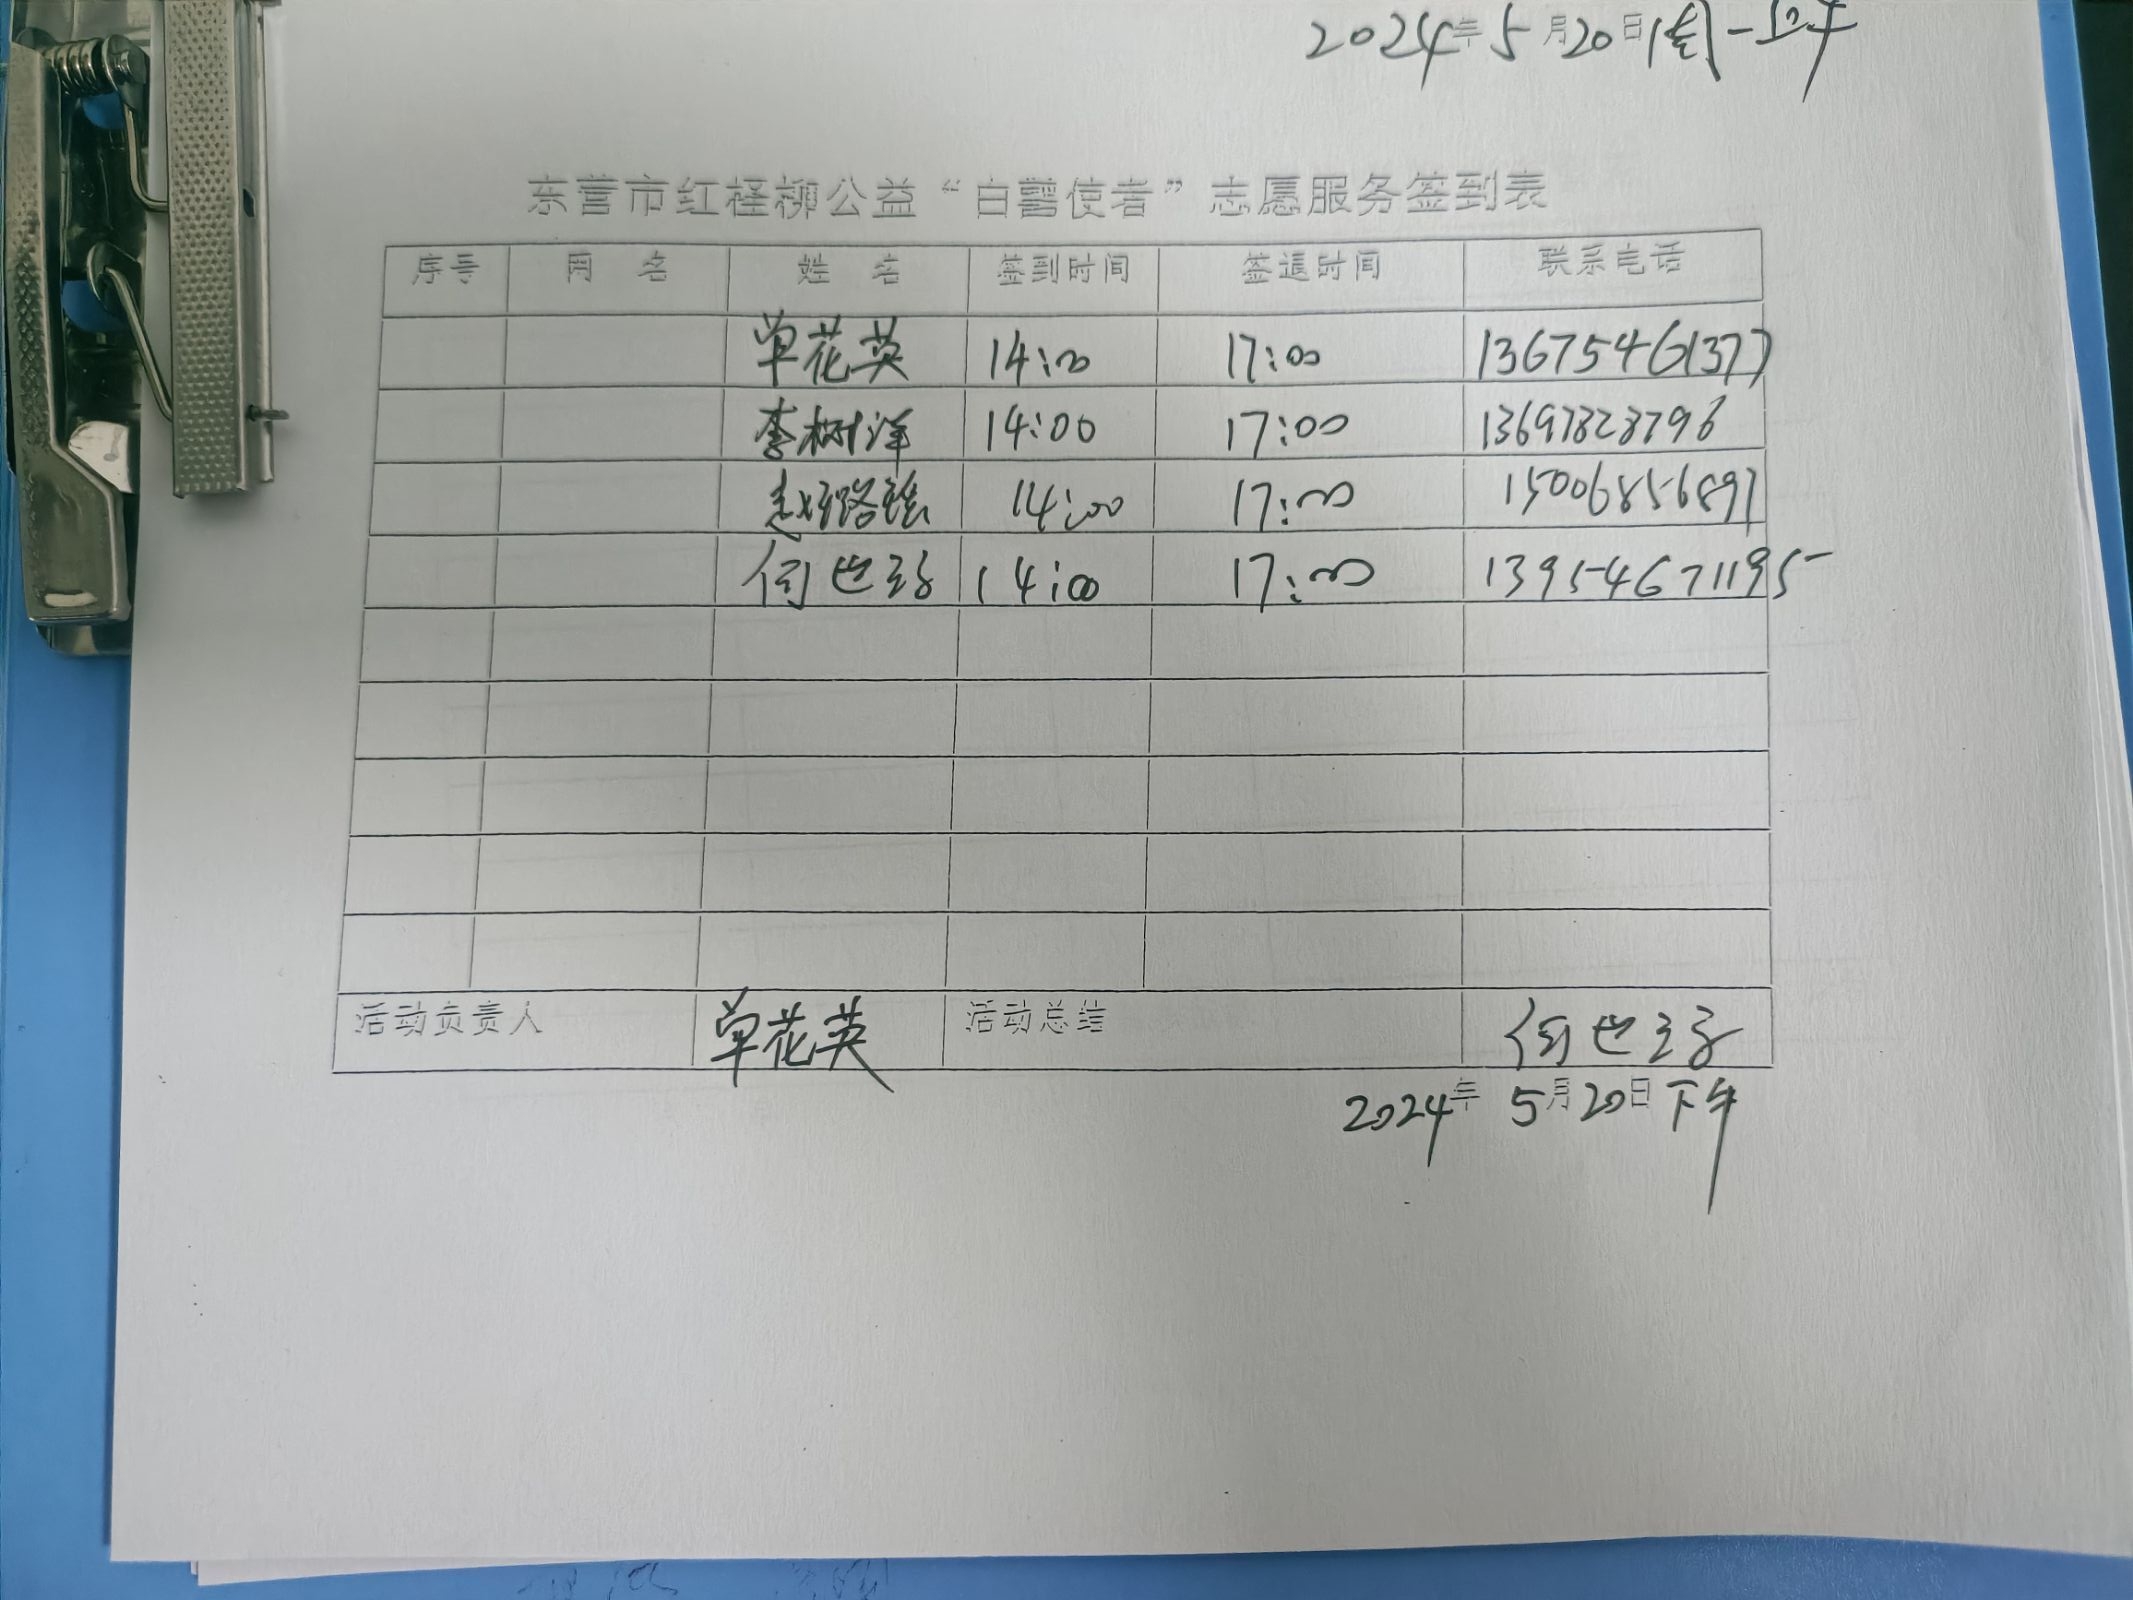 2024年5月20日(周一上午
东营市红柽柳公益“白鹭使者”志愿服务签到表
序号 网 名 姓 名 签到时间 签退时间 联系电话
单花英 14:00 17:00 13675461377
李树洋 14:00 17:00 13697828796
赵路 14:00 17:00 15006856897
何也 14:00 17:00 13954671195
活动负责人 单花英 活动总结 何也
2024年5月20日下午